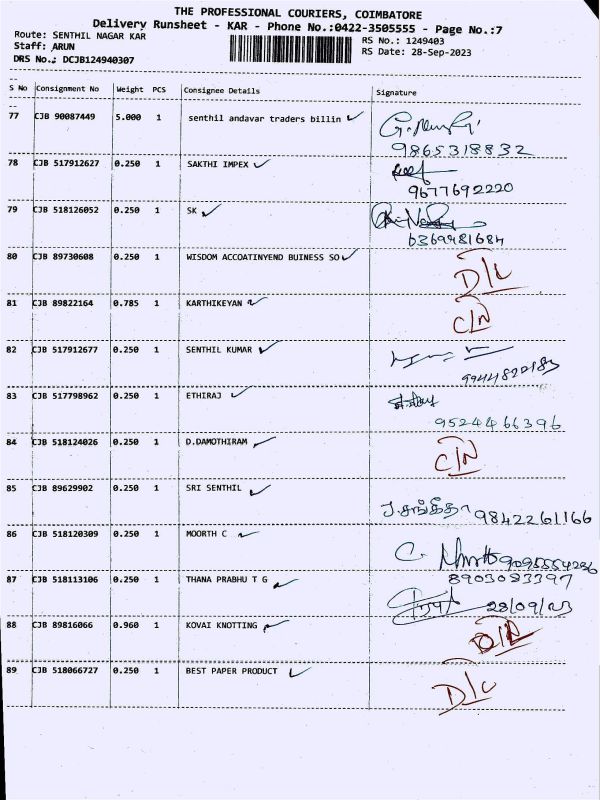 THE PROFESSIONAL COURIERS, COIMBATORE
Delivery Runsheet - KAR - Phone No.:0422-3505555 - Page No.:7
Route: SENTHIL NAGAR KAR
RS No.: 1249403
Staff: ARUN
RS Date: 28-Sep-2023
DRS No.: DCJB124940307
S No Consignment No Weight PCS Consignee Details Signature
77 CJB 90087449 5.000 1 senthil andavar traders billin
9865318832
78 CJB 517912627 0.250 1 SAKTHI IMPEX
9677692220
79 CJB 518126052 0.250 1 SK
6369981684
80 CJB 89730608 0.250 1 WISDOM ACCOATINYEND BUINESS SO D/L
81 CJB 89822164 0.785 1 KARTHIKEYAN C/N
82 CJB 517912677 0.250 1 SENTHIL KUMAR
83 CJB 517798962 0.250 1 ETHIRAJ
9524466396
84 CJB 518124026 0.250 1 D.DAMOTHIRAM C/N
85 CJB 89629902 0.250 1 SRI SENTHIL
J.சங்கீதா 9842261166
86 CJB 518120309 0.250 1 MOORTH C
87 CJB 518113106 0.250 1 THANA PRABHU T G 8903083397
28/09/23
88 CJB 89816066 0.960 1 KOVAI KNOTTING
89 CJB 518066727 0.250 1 BEST PAPER PRODUCT D/L